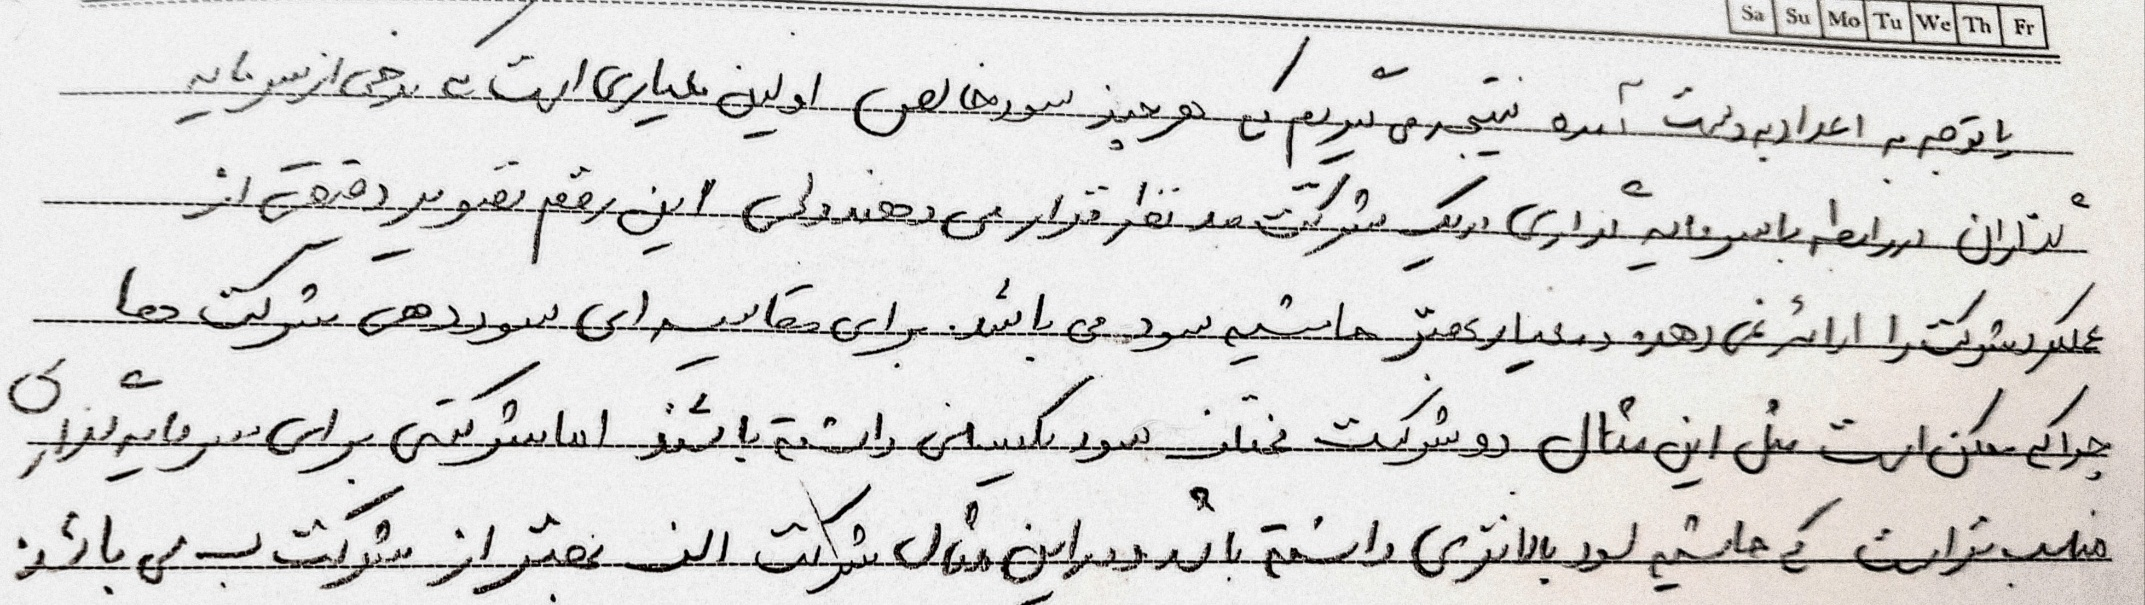 Sa Su Mo Tu We Th Fr
با توجه به اعداد به دست آمده نتیجه می گیریم که هر چند سود خالص اولین معیاری است که برخی از سرمایه
گذاران در رابطه با سرمایه گذاری در یک شرکت مد نظر قرار می دهند ولی این رقم تصویر دقیقی از
عملکرد شرکت را ارائه نمی دهد و معیار بهتر حاشیه سود می باشد. برای مقایسه ای سود دهی شرکت ها
چرا که ممکن است مثل این مثال دو شرکت مختلف سود یکسانی داشته باشند اما شرکتی برای سرمایه گذاری
مناسب تر است که حاشیه سود بالاتری داشته باشد و در این مثال شرکت الف بهتر از شرکت ب می باشد.